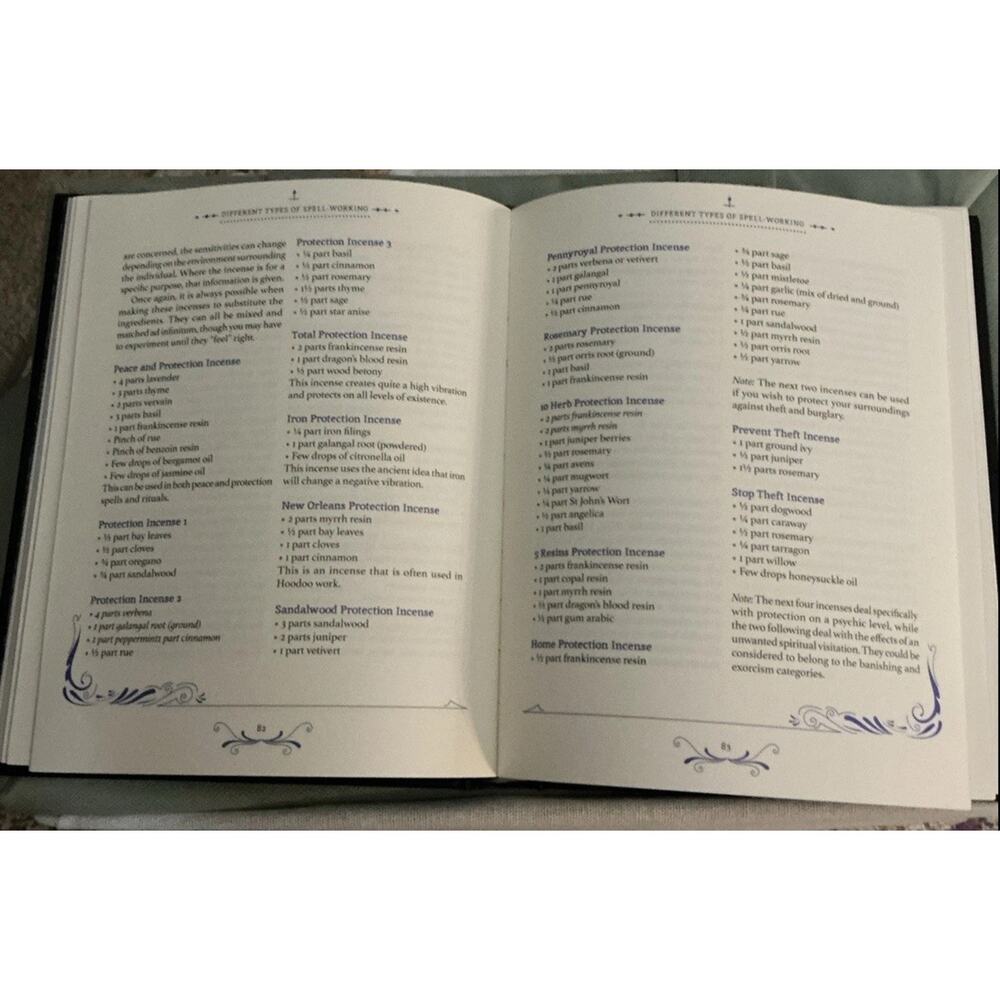 DIFFERENT TYPES OF SPELL-WORKING
are concerned, the sensitivities can change
depending on the environment surrounding
the individual. Where the incense is for a
specific purpose, that information is given.
Once again, it is always possible when
making these incenses to substitute the
ingredients. They can all be mixed and
matched ad infinitum, though you may have
to experiment until they "feel" right.
Peace and Protection Incense
• 4 parts lavender
• 3 parts thyme
• 2 parts vervain
• 3 parts basil
• 1 part frankincense resin
• Pinch of rue
• Pinch of benzoin resin
• Few drops of bergamot oil
• Few drops of jasmine oil
This can be used in both peace and protection
spells and rituals.
Protection Incense 1
• ½ part bay leaves
• ½ part cloves
• ¾ part oregano
• ¾ part sandalwood
Protection Incense 2
• 4 parts verbena
• 1 part galangal root (ground)
• 1 part peppermint1 part cinnamon
• ½ part rue
Protection Incense 3
• ¼ part basil
• part cinnamon
• ½ part rosemary
• 1½ parts thyme
• ½ part sage
• ½ part star anise
Total Protection Incense
• 2 parts frankincense resin
• 1 part dragon's blood resin
• ½ part wood betony
This incense creates quite a high vibration
and protects on all levels of existence.
Iron Protection Incense
• ¼ part iron filings
• 1 part galangal root (powdered)
• Few drops of citronella oil
This incense uses the ancient idea that iron
will change a negative vibration.
New Orleans Protection Incense
• 2 parts myrrh resin
• ½ part bay leaves
• 1 part cloves
• 1 part cinnamon
This is an incense that is often used in
Hoodoo work.
Sandalwood Protection Incense
• 3 parts sandalwood
• 2 parts juniper
• 1 part vetivert
82
DIFFERENT TYPES OF SPELL-WORKING
Pennyroyal Protection Incense
• 2 parts verbena or vetivert
• 1 part galangal
• 1 part pennyroyal
• part rue
• ½ part cinnamon
Rosemary Protection Incense
• 2 parts rosemary
• ½ part orris root (ground)
• 1 part basil
• 1 part frankincense resin
10 Herb Protection Incense
• 2 parts frankincense resin
• 2 parts myrrh resin
• 1 part juniper berries
• ½ part rosemary
• part avens
• part mugwort
• part yarrow
• part St John's Wort
• ½ part angelica
• 1 part basil
5 Resins Protection Incense
• 2 parts frankincense resin
• 1 part copal resin
• 1 part myrrh resin
• ½ part dragon's blood resin
• ½ part gum arabic
Home Protection Incense
• ½ part frankincense resin
• part sage
• ½ part basil
• ½ part mistletoe
• ¼ part garlic (mix of dried and ground)
• part rosemary
• part rue
• 1 part sandalwood
• ½ part myrrh resin
• ½ part orris root
• ½ part yarrow
Note: The next two incenses can be used
if you wish to protect your surroundings
against theft and burglary.
Prevent Theft Incense
• 1 part ground ivy
• ½ part juniper
• 1½ parts rosemary
Stop Theft Incense
• ½ part dogwood
• ¼ part caraway
• ½ part rosemary
• ¼ part tarragon
• 1 part willow
• Few drops honeysuckle oil
Note: The next four incenses deal specifically
with protection on a psychic level, while
the two following deal with the effects of an
unwanted spiritual visitation. They could be
considered to belong to the banishing and
exorcism categories.
83